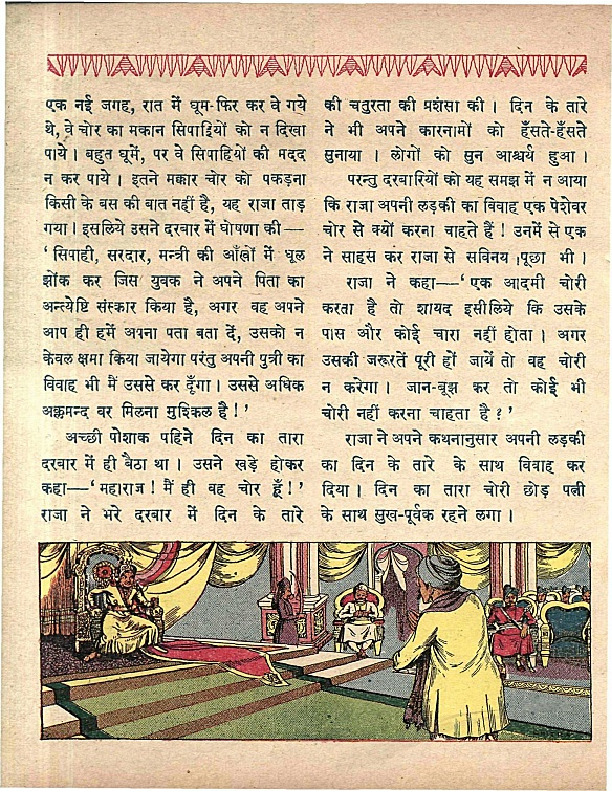 एक नई जगह, रात में घूम-फिर कर वे गये
थे, वे चोर का मकान सिपाहियों को न दिखा
पाये। बहुत घूमें, पर वे सिपाहियों की मदद
न कर पाये। इतने मक्कार चोर को पकड़ना
किसी के बस की बात नहीं है, यह राजा ताड़
गया। इसलिये उसने दरबार में घोषणा की—
‘सिपाही, सरदार, मन्त्री की आँखों में धूल
झोंक कर जिस युवक ने अपने पिता का
अन्त्येष्टि संस्कार किया है, अगर वह अपने
आप ही हमें अपना पता बता दें, उसको न
केवल क्षमा किया जायेगा परंतु अपनी पुत्री का
विवाह भी मैं उससे कर दूँगा। उससे अधिक
अक्लमन्द वर मिलना मुश्किल है!’
अच्छी पोशाक पहिने दिन का तारा
दरबार में ही बैठा था। उसने खड़े होकर
कहा—‘महाराज! मैं ही वह चोर हूँ!’
राजा ने भरे दरबार में दिन के तारे
की चतुरता की प्रशंसा की। दिन के तारे
ने भी अपने कारनामों को हँसते-हँसते
सुनाया। लोगों को सुन आश्चर्य हुआ।
परन्तु दरबारियों को यह समझ में न आया
कि राजा अपनी लड़की का विवाह एक पेशेवर
चोर से क्यों करना चाहते हैं! उनमें से एक
ने साहस कर राजा से सविनय पूछा भी।
राजा ने कहा—‘एक आदमी चोरी
करता है तो शायद इसीलिये कि उसके
पास और कोई चारा नहीं होता। अगर
उसकी जरूरतें पूरी हों जायें तो वह चोरी
न करेगा। जान-बूझ कर तो कोई भी
चोरी नहीं करना चाहता है?’
राजा ने अपने कथनानुसार अपनी लड़की
का दिन के तारे के साथ विवाह कर
दिया। दिन का तारा चोरी छोड़ पत्नी
के साथ सुख-पूर्वक रहने लगा।